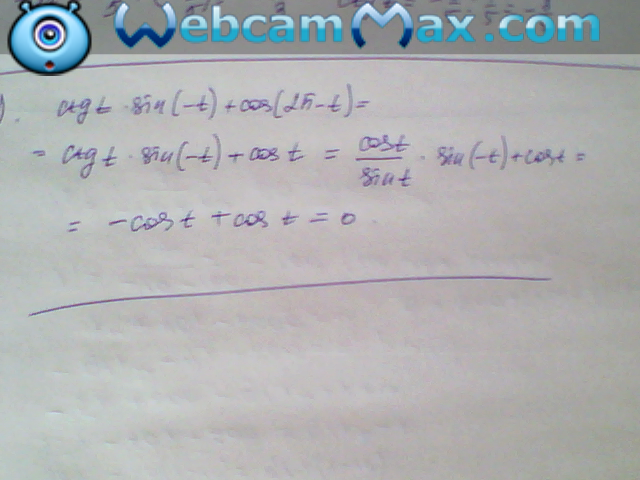 WebcamMax.com
). ctg t · sin(-t) + cos(2π - t) =
= ctg t · sin(-t) + cos t = cos t / sin t · sin(-t) + cos t =
= - cos t + cos t = 0.